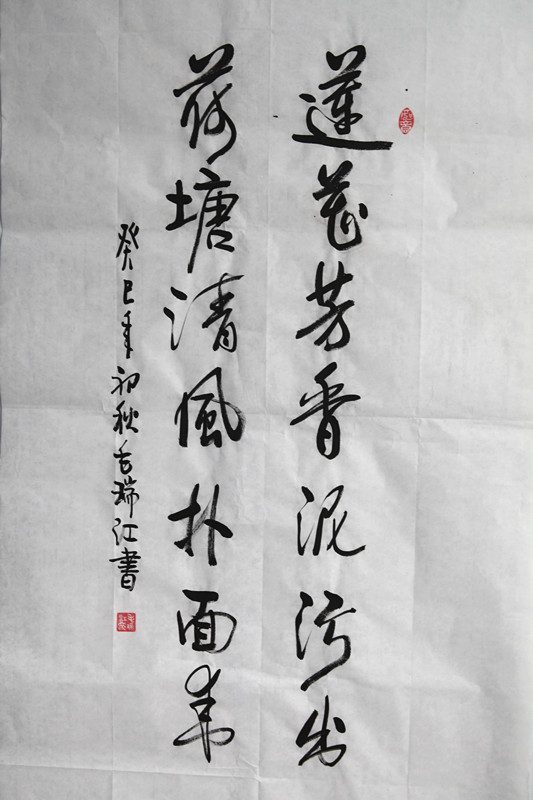 蓮花芳香泥污出
荷塘清風扑面来
癸巳年初秋毛瑞江書